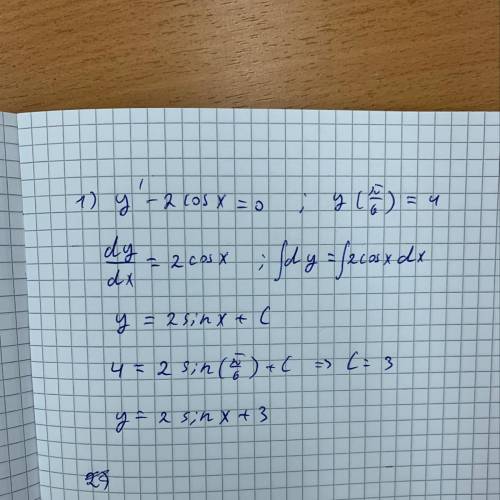 1) y' - 2 cos x = 0 ; y(π/6) = 4
dy/dx = 2 cos x ; ∫dy = ∫2cos x dx
y = 2 sin x + C
4 = 2 sin(π/6) + C => C = 3
y = 2 sin x + 3